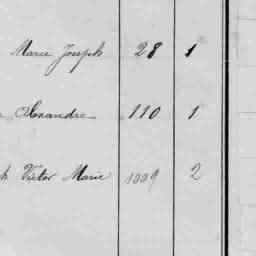 Marie Joseph 28 1
Alexandre 110 1
h Victor Marie 1009 2